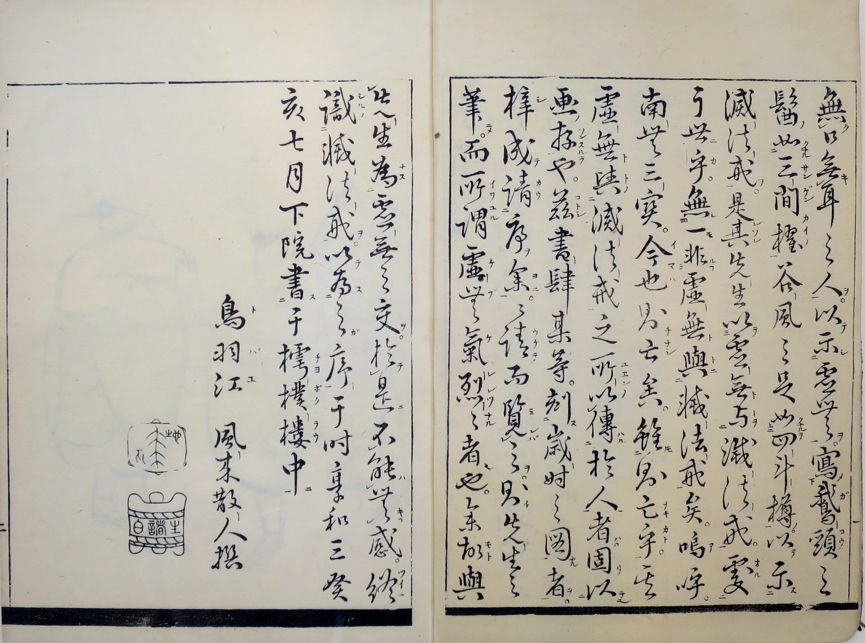 無口無耳之人以示虚無寫鵞頸之
鬠如三間櫂谷風之足如四斗樽以示
滅法戒是其先生以虚無与滅法戒要
于世乎無一非虚無與滅法戒矣嗚呼
南無三宝今也則亡矣雖則亡乎其
虚無與滅法戒之所以傳於人者固以
画存也茲書肆某等刻歳時之図者
梓成請序余之請而覧之則先生之
筆而所謂虚無氣烈之者也余故與
先生為虚無之交於是不能無感終
識滅法戒以為之序于時享和三癸
亥七月下院書于樗樸楼中
鳥羽江 風来散人撰